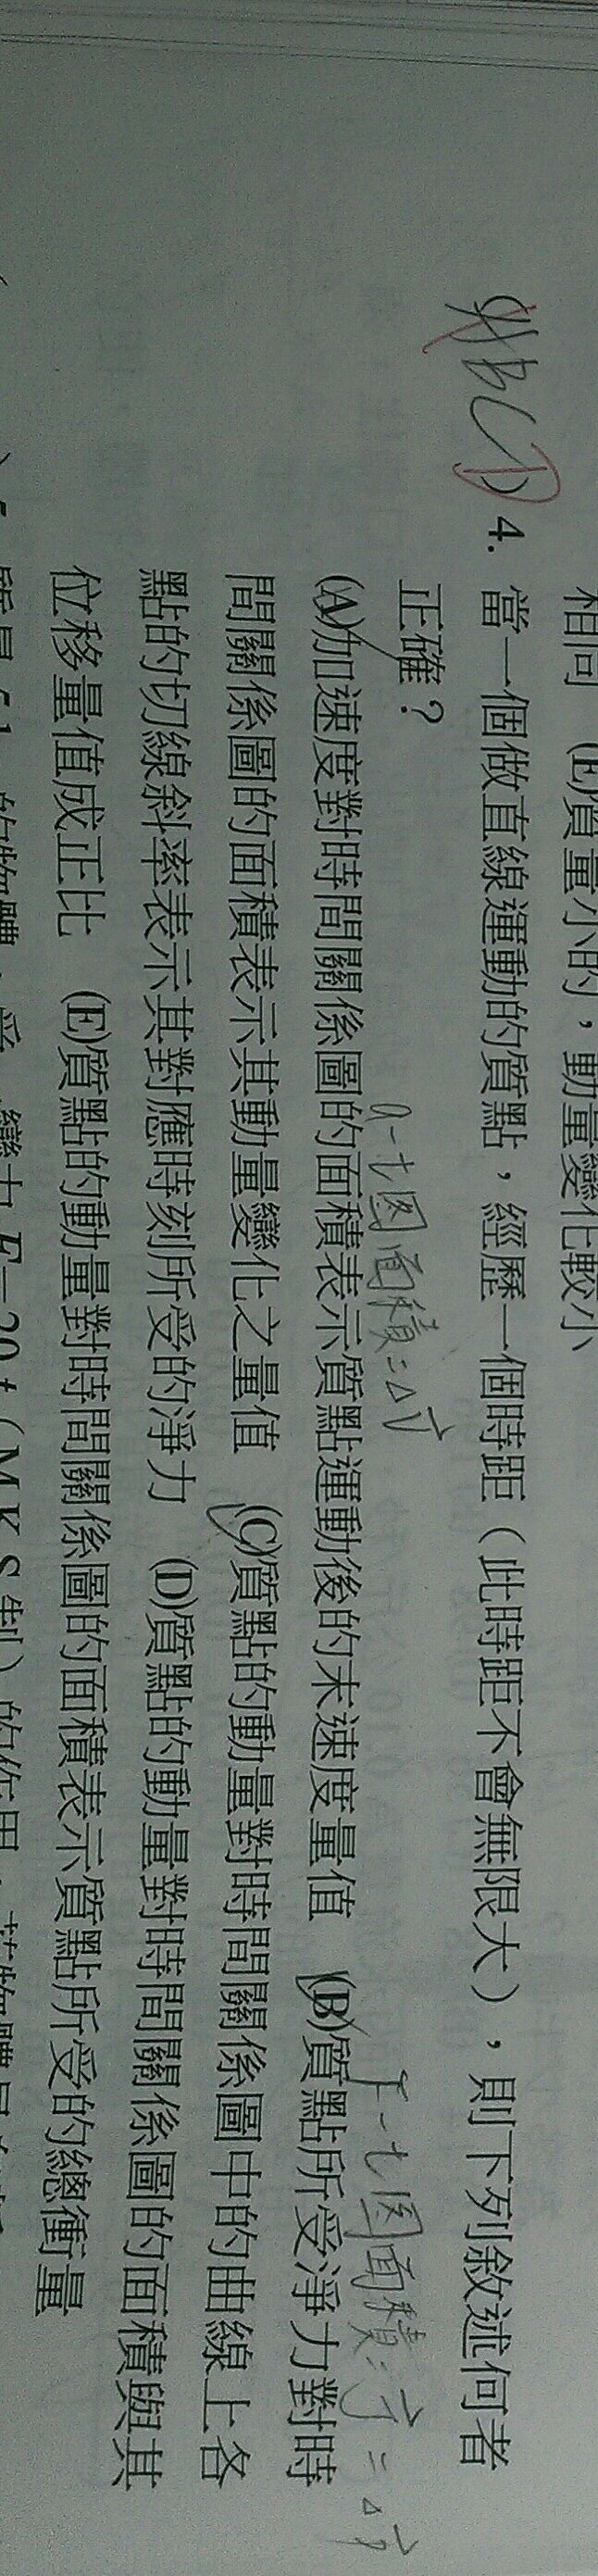 相同 (E)質量小的，動量變化較小
BCD) 4. 當一個做直線運動的質點，經歷一個時距（此時距不會無限大），則下列敘述何者
正確？
a-t図面積=Δv⃗
F-t図面積=J⃗=Δp⃗
(A)加速度對時間關係圖的面積表示質點運動後的末速度量值 (B)質點所受淨力對時
間關係圖的面積表示其動量變化之量值 (C)質點的動量對時間關係圖中的曲線上各
點的切線斜率表示其對應時刻所受的淨力 (D)質點的動量對時間關係圖的面積與其
位移量值成正比 (E)質點的動量對時間關係圖的面積表示質點所受的總衝量
力 F=20 t（M.K.S.制）的作用，若物體